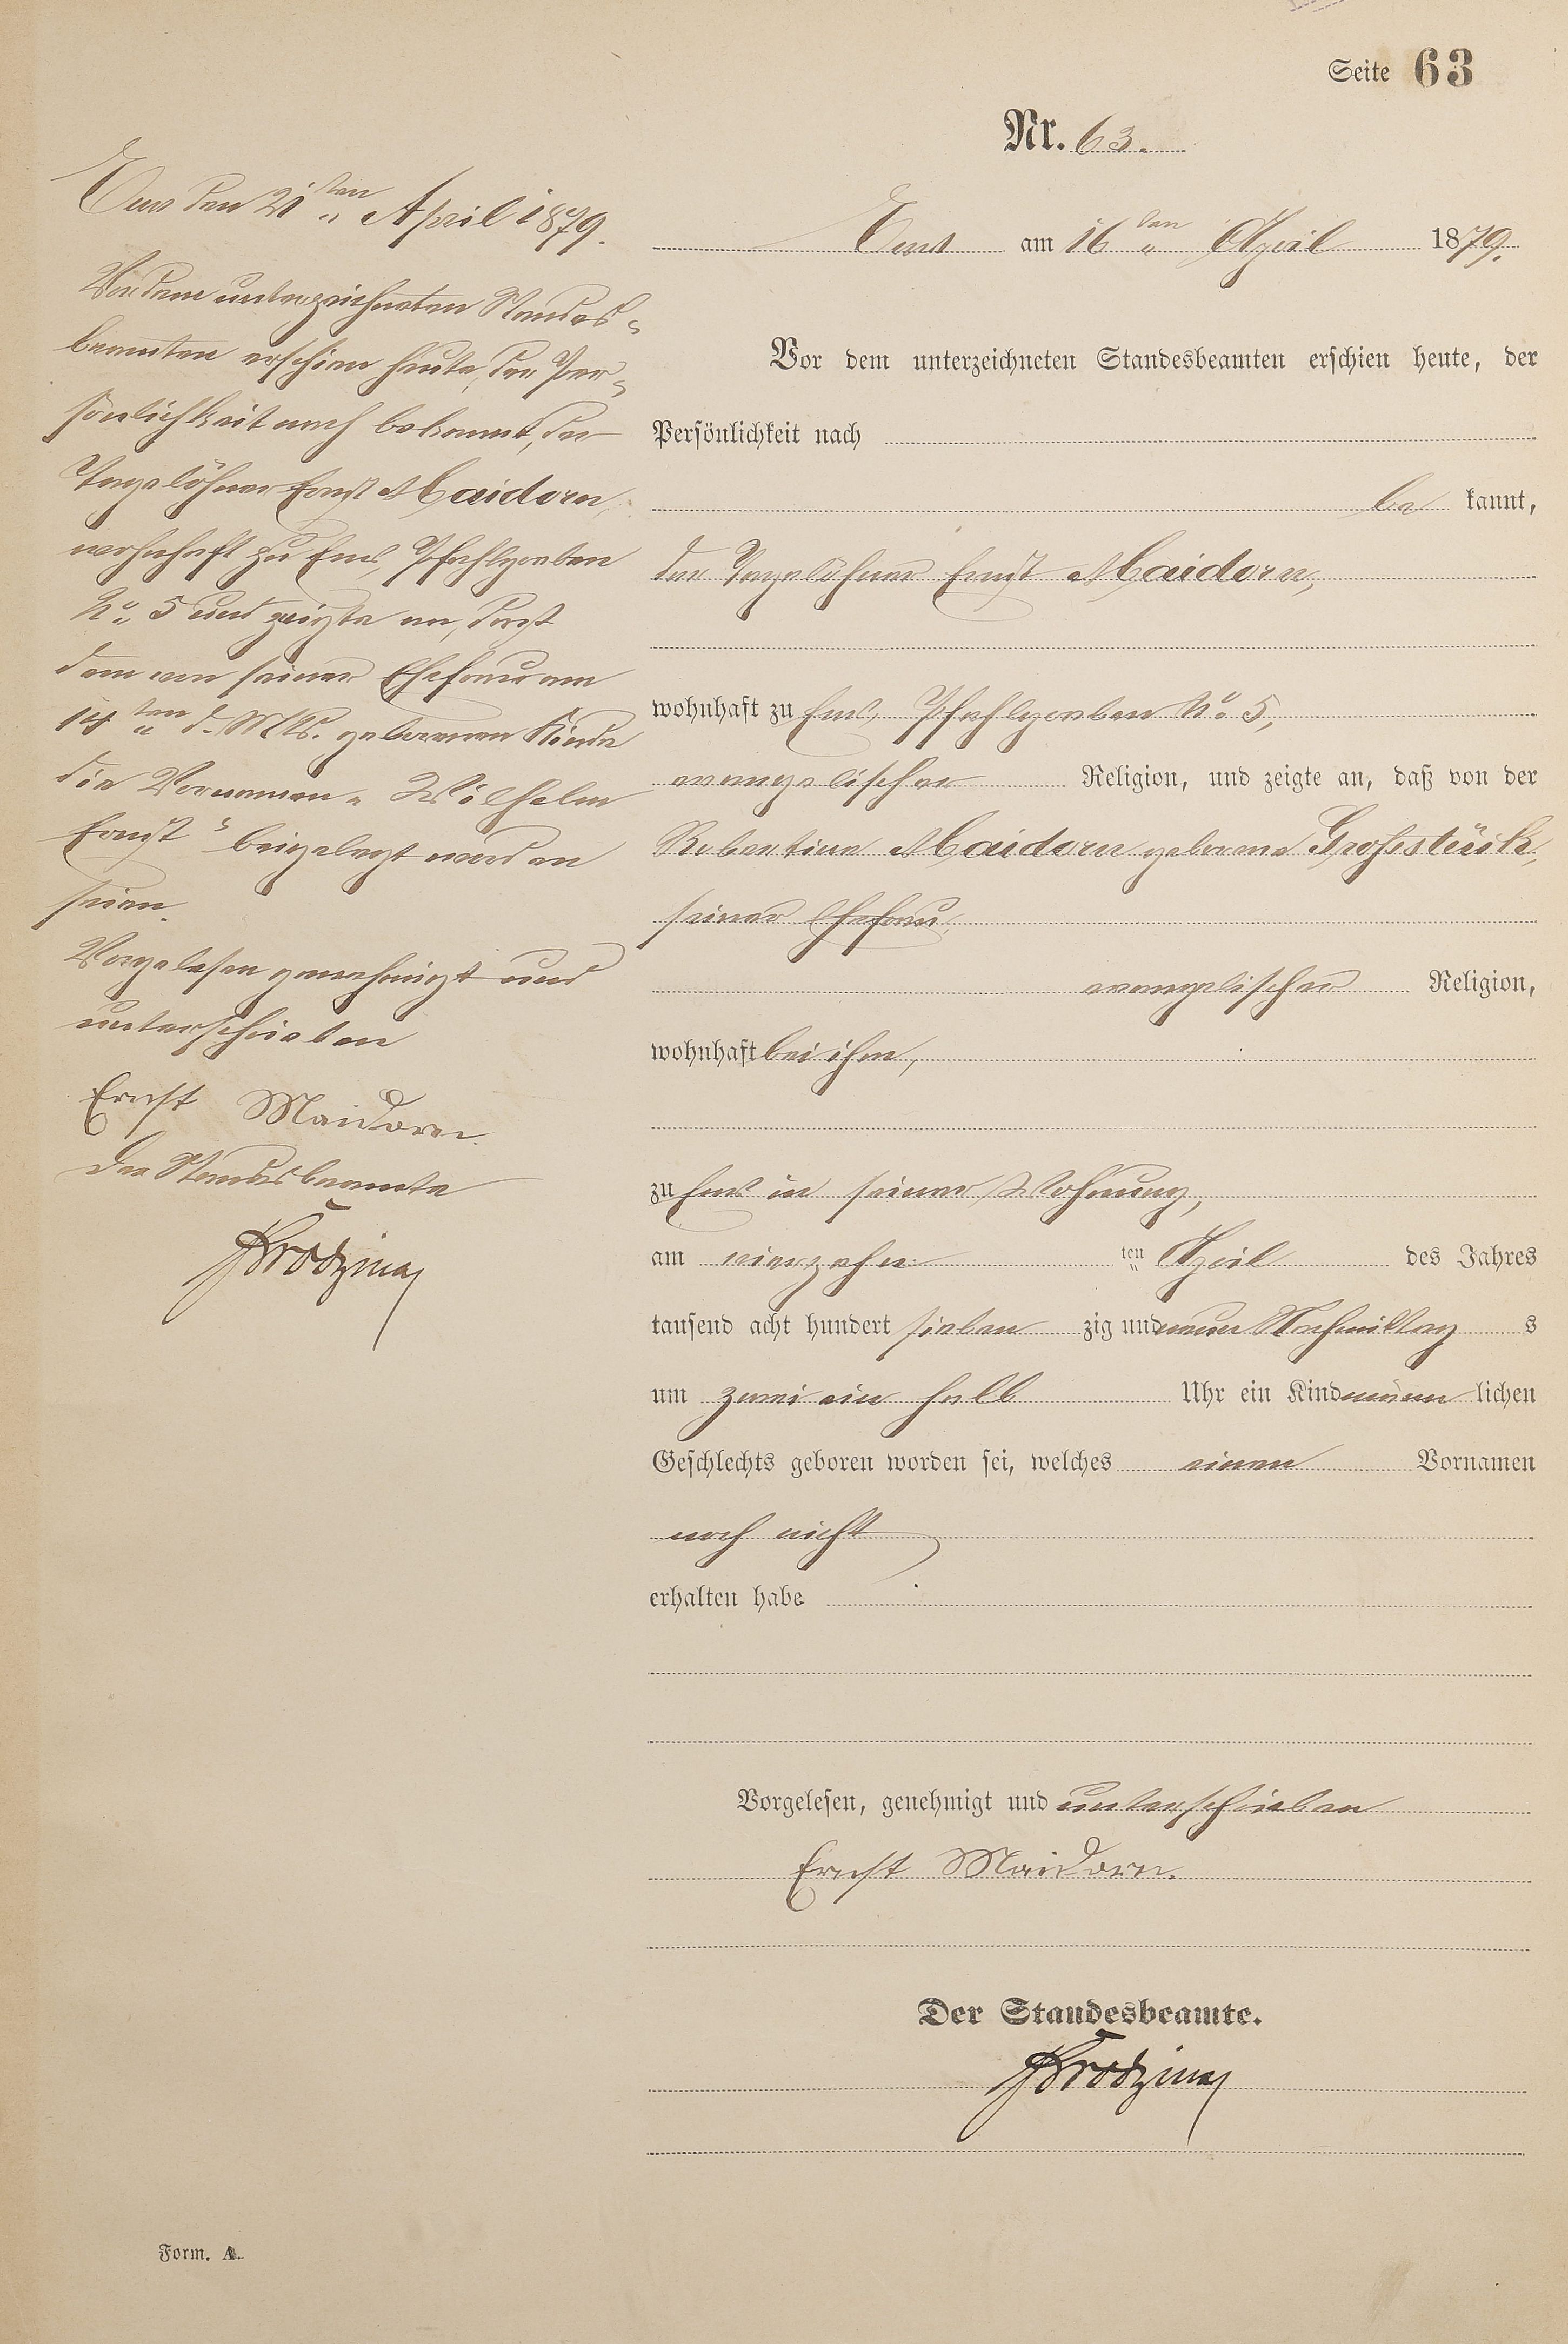 Seite 63
Nr. 63.
Ems den 21ten April 1879.
Vor dem unterzeichneten Standes=
beamten erschien heute, der Per=
sönlichkeit nach bekannt, der
Tagelöhner Ernst Maidorn,
wohnhaft zu Ems, Pfahlgraben
No. 5 und zeigte an, daß
dem von seiner Ehefrau am
14ten d. Mts. geborenen Kinde
die Vornamen „Wilhelm
Ernst“ beigelegt worden
seien.
Vorgelesen genehmigt und
unterschrieben
Ernst Maidorn.
Der Standesbeamte
Ems am 16ten April 1879.
Vor dem unterzeichneten Standesbeamten erschien heute, der
Persönlichkeit nach
be kannt,
der Tagelöhner Ernst Maidorn,
wohnhaft zu Ems, Pfahlgraben No. 5,
evangelischer Religion, und zeigte an, daß von der
Maidorn geborene Großstück,
seiner Ehefrau,
evangelischer Religion,
wohnhaft bei ihm,
zu Ems in seiner Wohnung,
am vierzehn ten April des Jahres
tausend acht hundert sieben zig und neun Nachmittag s
um zwei ein halb Uhr ein Kind männ lichen
Geschlechts geboren worden sei, welches einen Vornamen
noch nicht
erhalten habe
Vorgelesen, genehmigt und unterschrieben
Ernst Maidorn.
Der Standesbeamte.
Form. A.